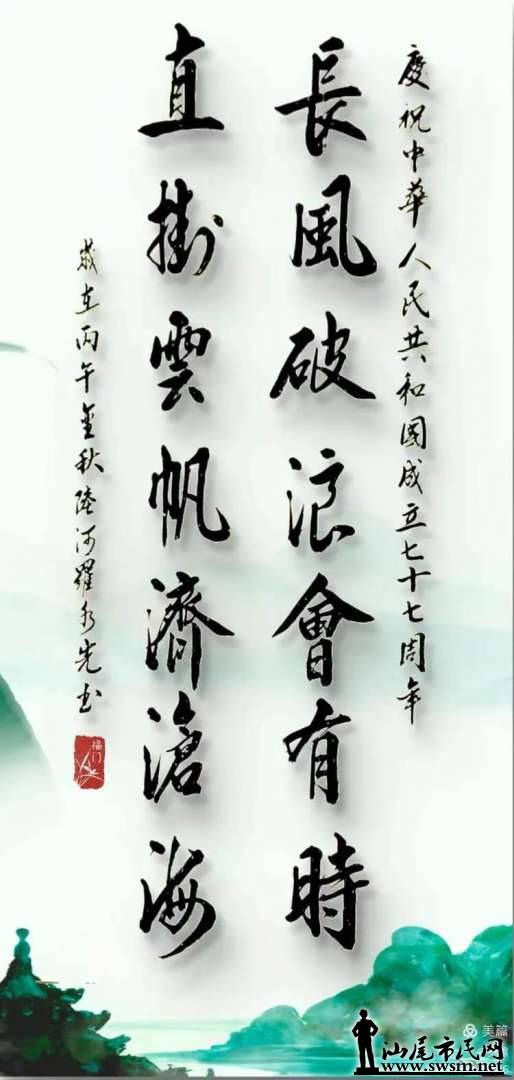 慶祝中華人民共和國成立七十七周年
長風破浪會有時
直掛雲帆濟滄海
歲在丙午金秋陸河羅水先書
美篇
汕尾市民网
www.swsm.net